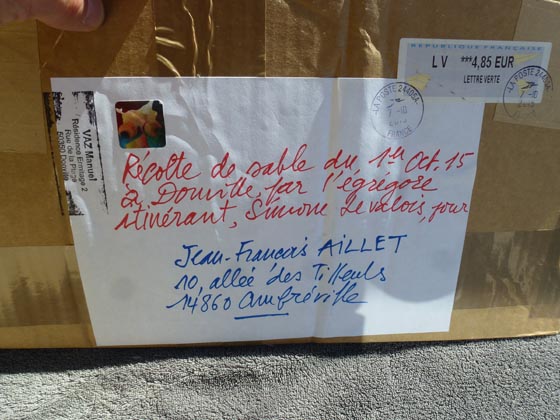 REPUBLIQUE FRANÇAISE
LV ***4,85 EUR
LETTRE VERTE
LA POSTE 24406A
7-10
FRANCE
VAZ Manuel
Résidence Ermitage 2
Rue de la Plage
50350 Donville
Récolte de sable du 1er Oct. 15
à Donville, par l'égrégore
itinérant, Simone Le valois, pour
Jean-François AILLET
10, allée des Tilleuls
14860 Amfréville